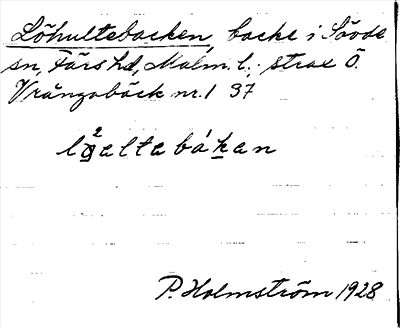 Löhultebacken, backe i Sövde
sn, Färs hd, Malm. l.; strax Ö.
Vrångabäck nr. 1 37
lö²altebákan
P. Holmström 1928